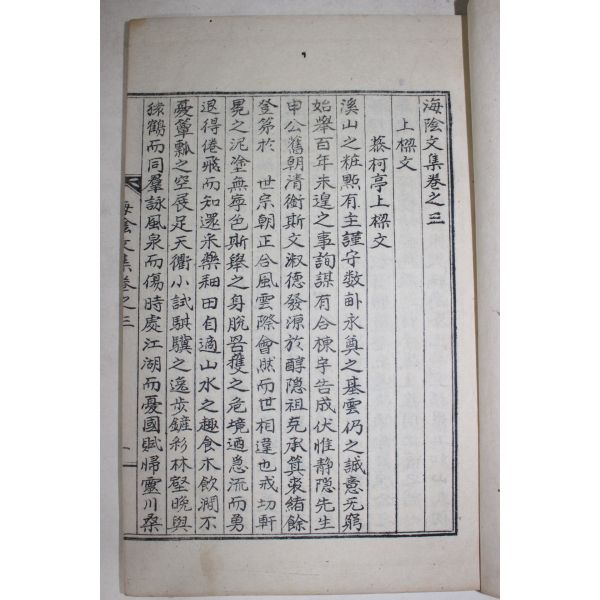 海陰文集卷之三
上樑文
蔡柯亭上樑文
溪山之粧點有主謹守数畝永奠之基雲仍之誠意无窮
始舉百年未遑之事詢謀有合棟宇告成伏惟静隠先生
申公舊朝清衡斯文淑德發源於醇隠祖克承箕裘緒餘
登第於 世宗朝正合風雲際會然而世相違也戒切軒
冕之泥塗無寧色斯舉之身脫罟擭之危境遒急流而勇
退得倦飛而知還釆藥種田自適山水之趣食木飲澗不
憂簞瓢之空展足天衢小試騏驥之逸步鏟彩林壑晚與
猿鶴而同羣詠風泉而傷時處江湖而憂國賦歸靈川桑
海陰文集卷之三
一